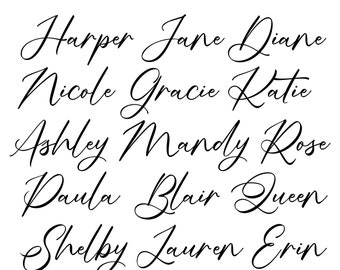 Harper Jane Diane
Nicole Gracie Katie
Ashley Mandy Rose
Paula Blair Queen
Shelby Lauren Erin